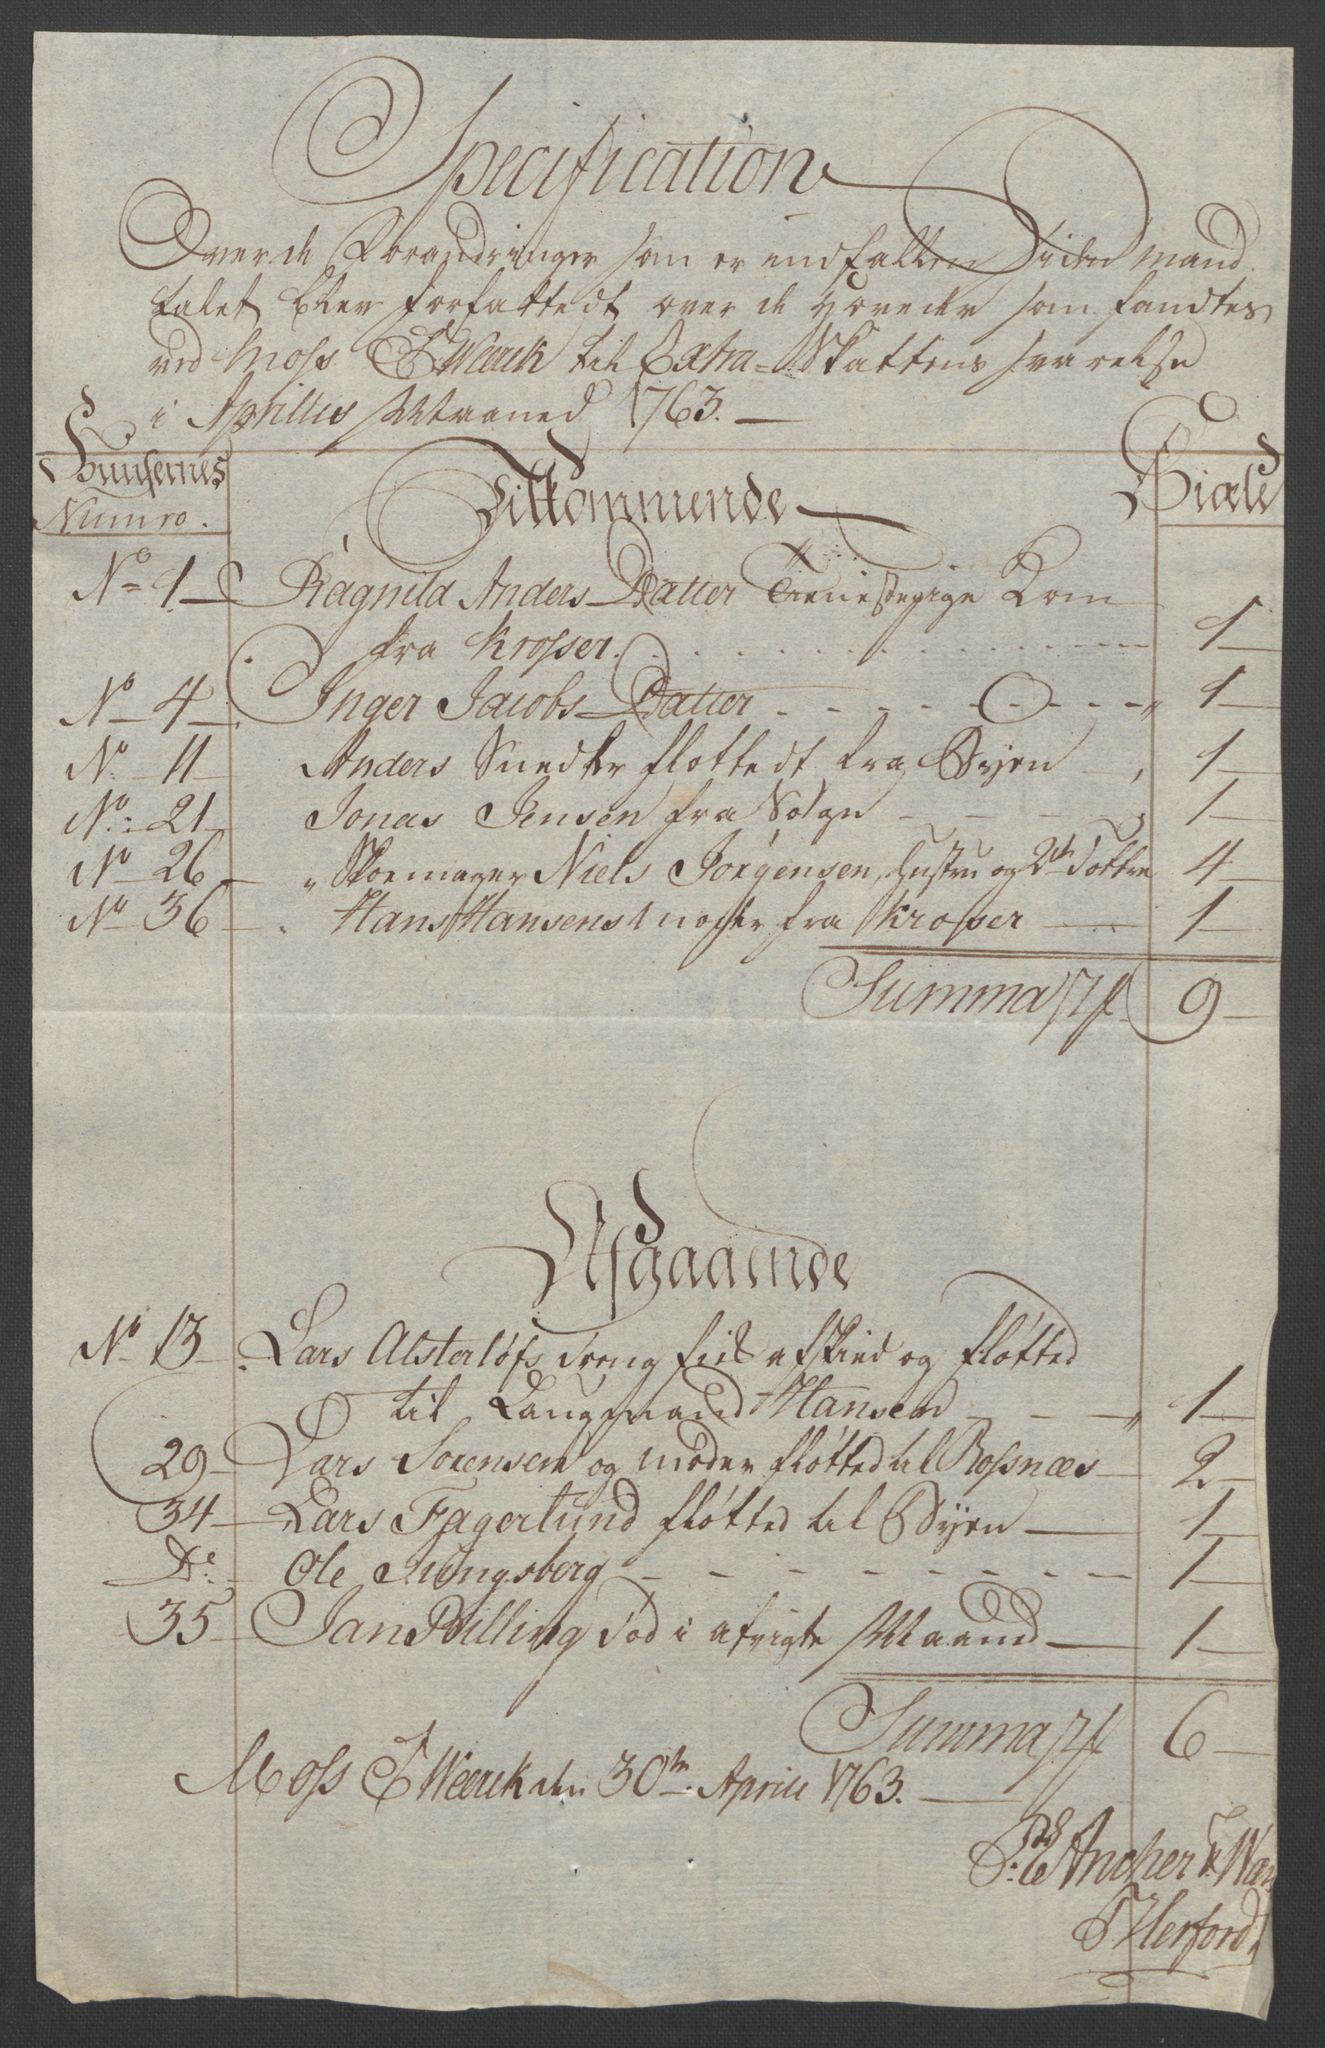 Specification
Over de Forandringer som er indfalten siden mand
talet blev forfattedt over de Hoveder som fandtes
ved Moss J Werck til Extra-Skattens svarelse
i Aprillis Maaned 1763.
Huusernes Tilkommende Siæle
Numro.
No 1 Ragnild Anders Datter Tienistepige kom
fra Krosser. 1
No 4 Inger Jacobs Datter 1
No 11 Anders Snedker fløttedt fra Byen 1
No: 21 Jonas Jensen fra Sogn 1
No 26 Skoemager Niels Jørgensen, hustru og 2de døttre 4
No 36 Hans Hansens moder fra Krosser 1
Summa 9
Afgaaende
No 13 Lars Alsterløfs dreng fik afskied og fløtted
til Laugmand Hansen 1
29 Lars Sørensen og moder fløtted til Rossnæs 2
34 Lars Fagerlund fløtted til Byen 1
Do: Ole Kongsberg 1
35 Jan Billing død i afvigte Maaned 1
Summa 6
Moss J Werck den 30te Aprili 1763.
Ancher
Herford